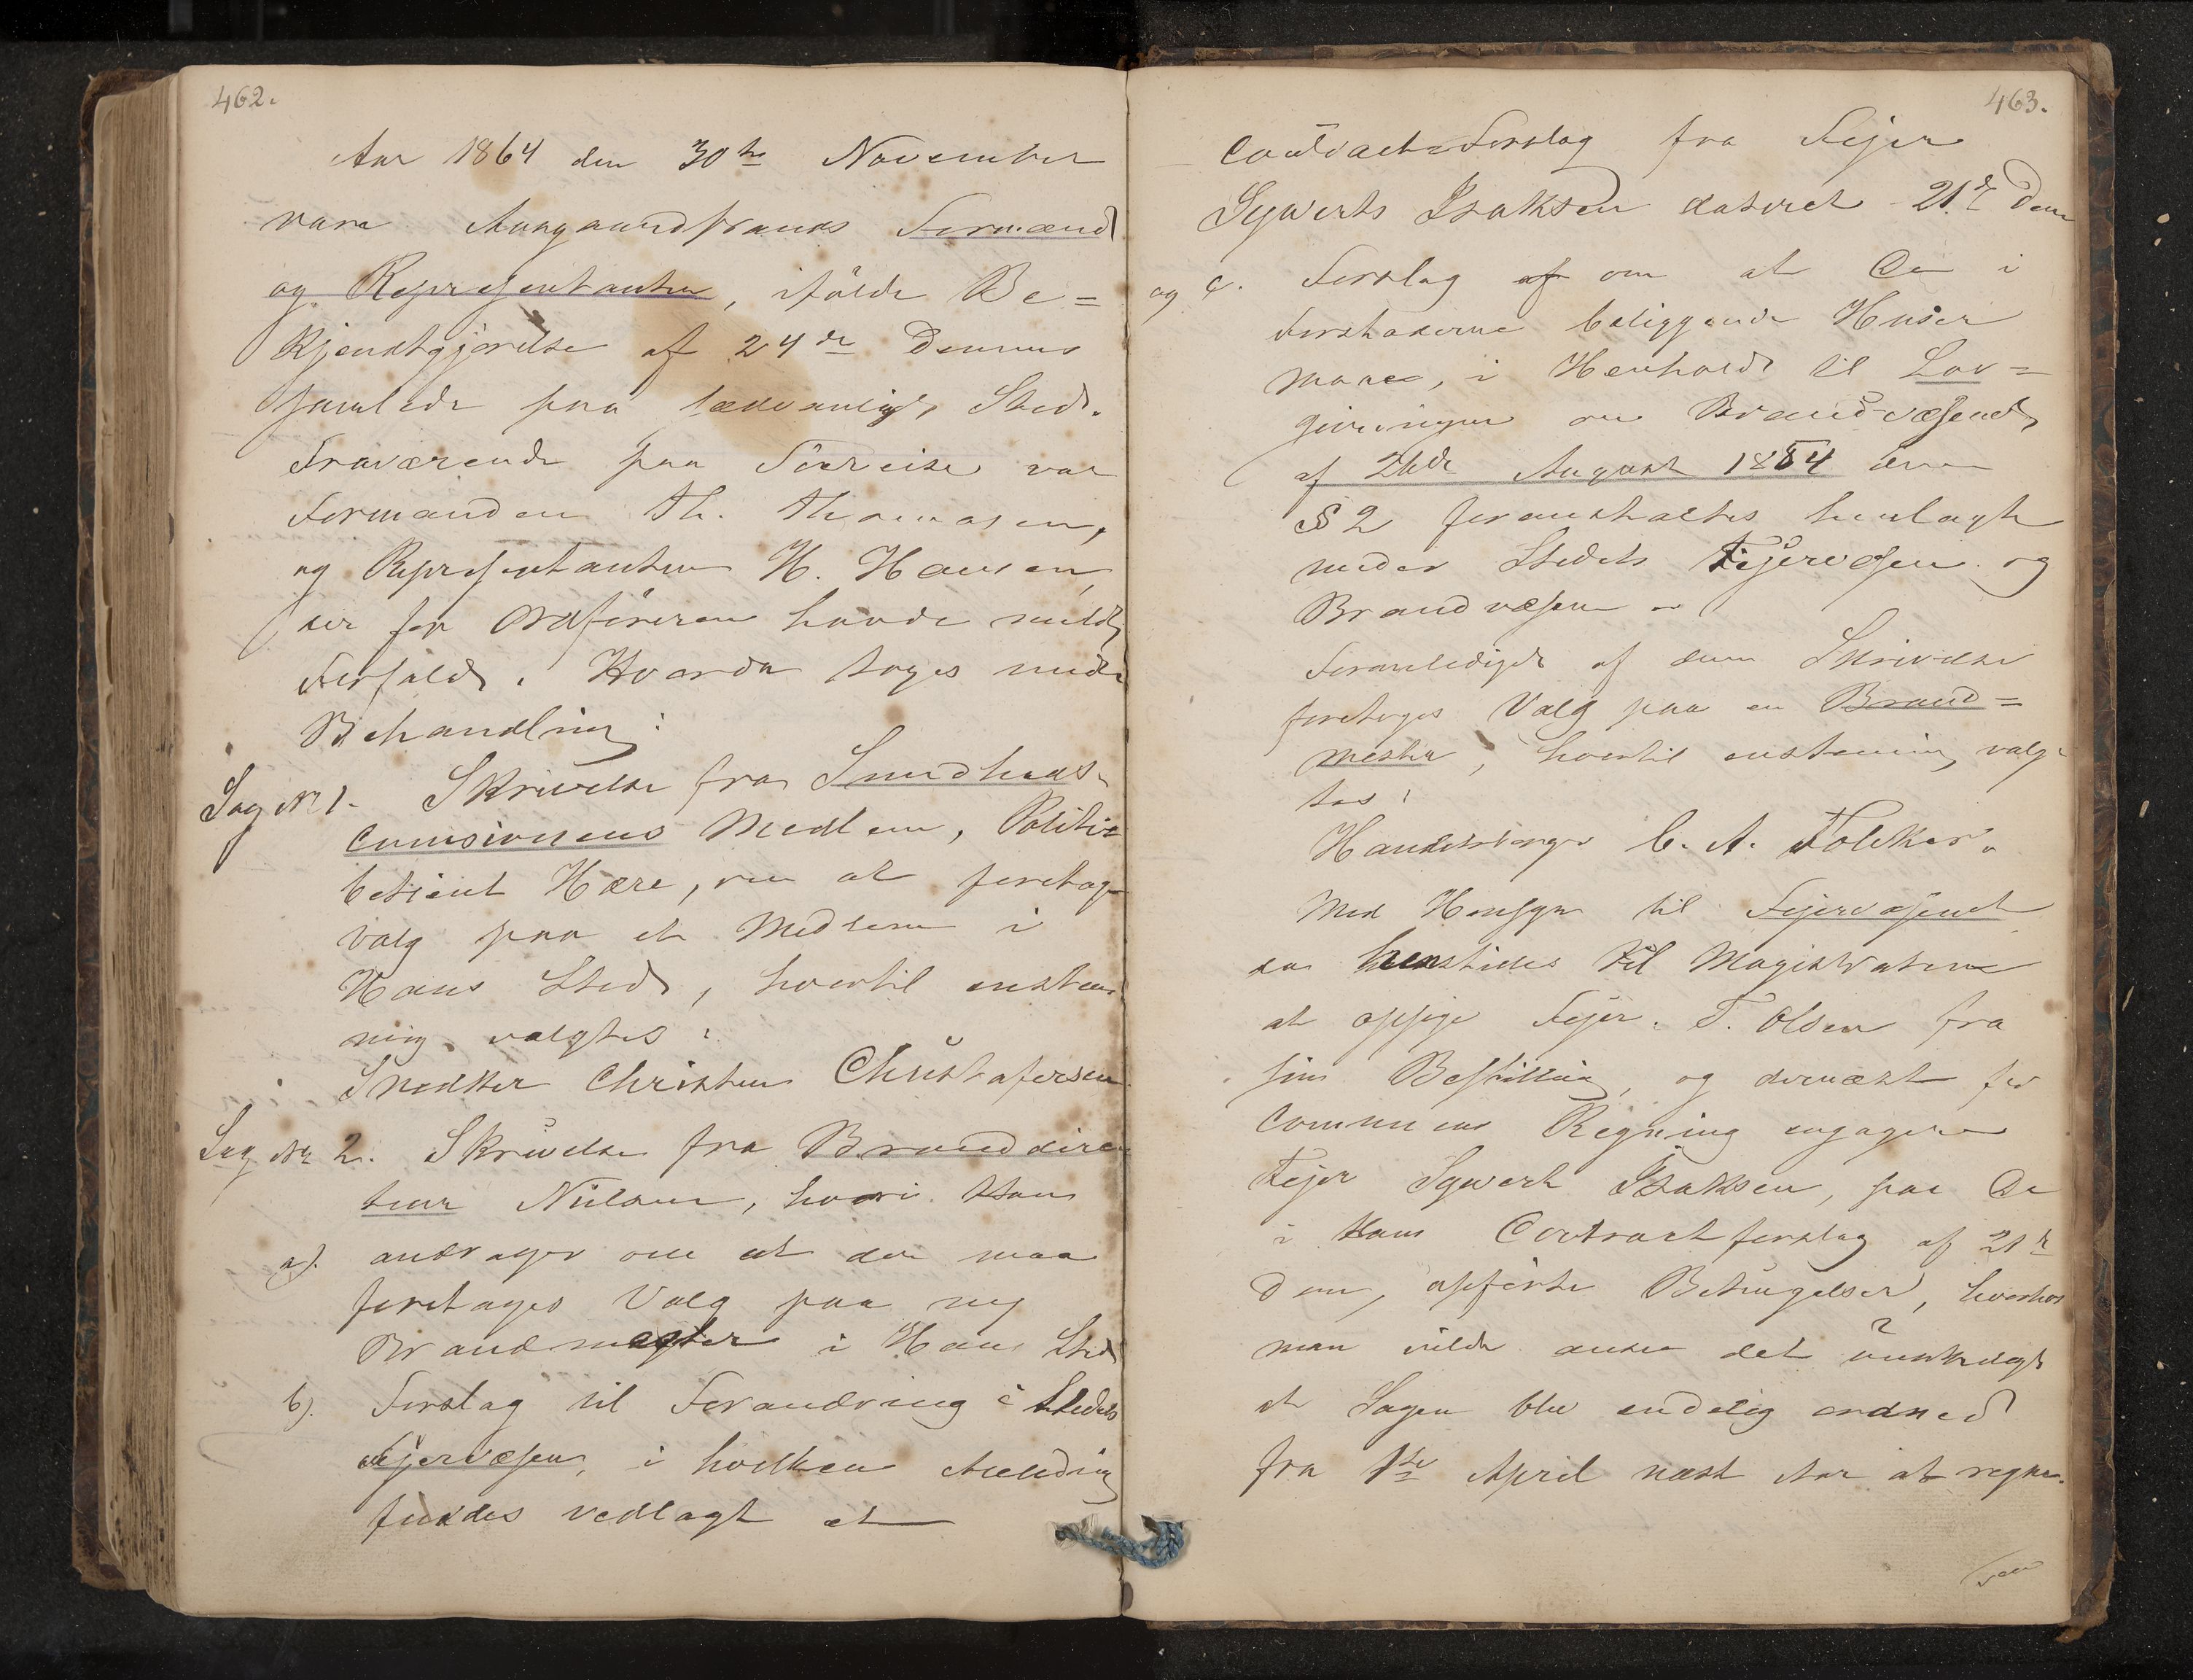 462.
Aar 1864 den 30te November
vare Aasgaardstrands Formænd
og Repræsentanter, ifölge Be=
kjendtgjörelse af 24de Dennes
samlede paa sædvanligt Sted.
Fraværende paa Söereise var
Formanden Th. Thomasen,
og Repræsentanten H. Hansen,
der for Ordföreren havde meldt
Forfald. Hvorda toges under
Behandling:
Sag No 1. Skrivelse fra Sundheds-
comisionens Medlem, Politie
betjent Hære, om at foretage
valg paa et Medlem i
Hans Sted, hvortil enstem
mig valgtes:
Snedker Christen Christofersen
Sag No 2. Skrivelse fra Branddirec
teur Nielsen, hvori Han
a). andrager om at der maa
foretages Valg paa ny
Brandmester i Hans Sted
b). Forslag til Forandring i Stedets
Fejervæsen, i hvilken Anledning
fandtes vedlagt et
463.
Contract-Forslag fra Fejer
Sywerts Isaksen dateret 21de Dens
og c. Forslag af om at De i
Forstæderne beliggende Huser
maae, i Henhold til Lov=
givningen om Brandvæsenet
af 26de August 1854 dens
§ 2 foranstaltes henlagt
under Stedets Fejervæsen og
Brandvæsen –
Foranlediget af denne Skrivelse
foretoges Valg paa en Brand=
mester, hvortil enstemmig valg-
tes:
Handelsborger C. A. Folkker.
Med Hensyn til Fejervæsenet
da henstilles til Magistraten
at opsige Fejer T. Olsen fra
sin Bestilling, og dernæst for
Communens Regning engagere
Fejer Sywert Isaksen, paa De
i Hans Contractforslag af 21de
Dens, opförte Betingelser, hvorhos
man vilde ansee det önskeligt
at Sagen blev endelig ordned
fra 1ste April næst Aar at regne.